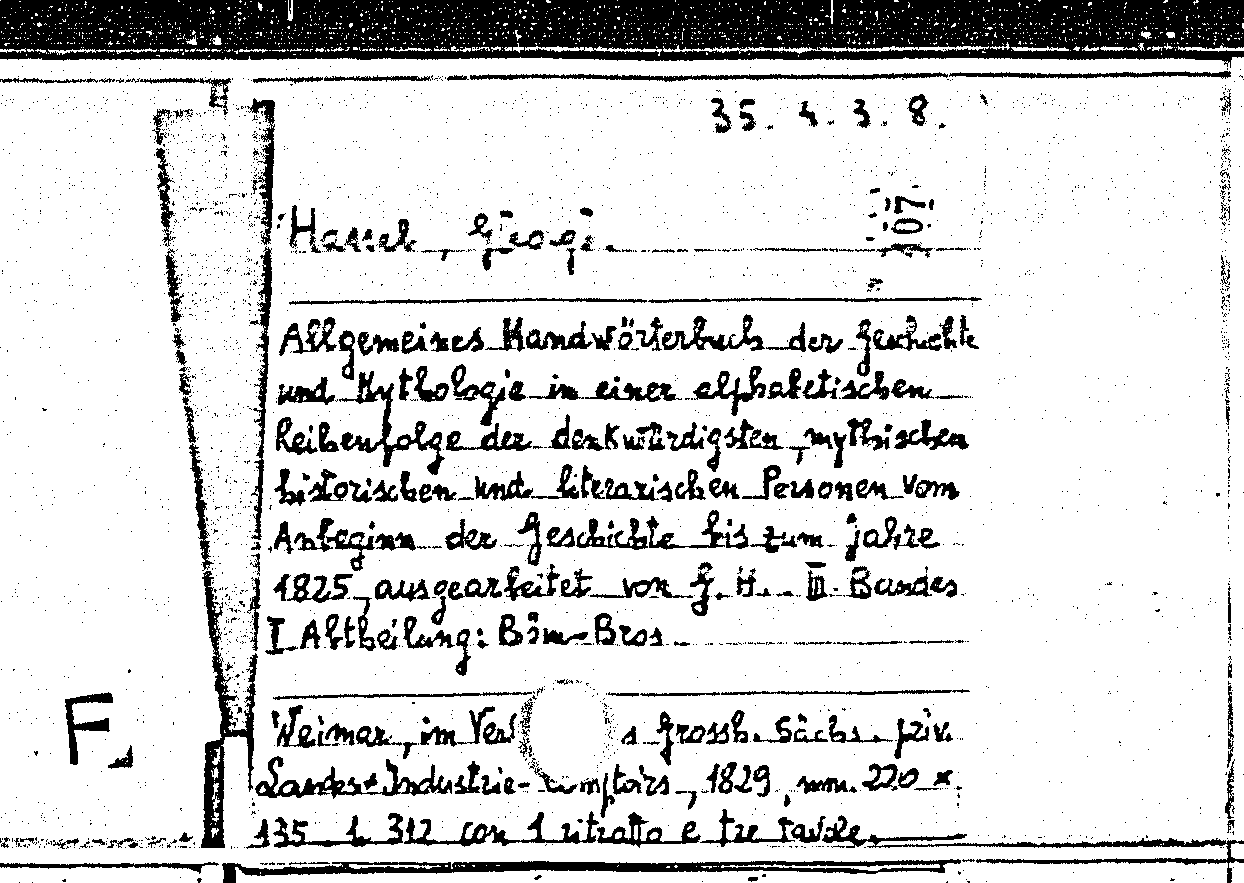 35. 4. 3. 8.
107
Hassel, Georg.
Allgemeines Handwörterbuch der Geschichte
und Mythologie in einer alphabetischen
Reihenfolge der denkwürdigsten, mythischen
historischen und literarischen Personen vom
Anbeginn der Geschichte bis zum Jahre
1825, ausgearbeitet von G. H.. II. Bandes
I Abtheilung: Böm-Bros.
Weimar, im Ver s Grossh. Sächs. priv.
F
Landes-Industrie- omptoirs, 1829, mm. 220 x
135 1. 312 con 1 ritratto e tre tavole.